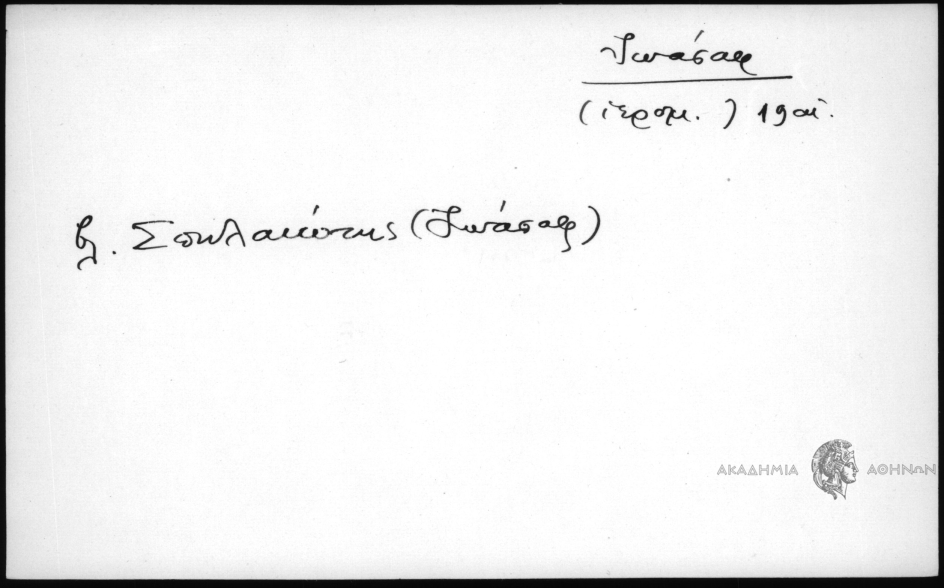 Ἰωάσαφ
(ἱερομ.) 19 αἰ.
βλ. Σπηλαιώτης (Ἰωάσαφ)
ΑΚΑΔΗΜΙΑ ΑΘΗΝΩΝ